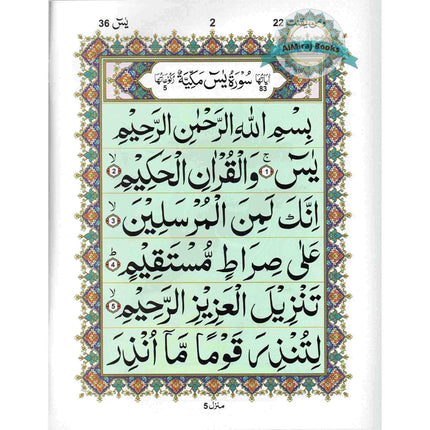 يٰسٓ 36 2 22
AlMiraj Books
اٰيَاتُهَا 83 سُوْرَةُ يٰسٓ مَكِّيَّةٌ رُكُوْعَاتُهَا 5
بِسْمِ اللّٰهِ الرَّحْمٰنِ الرَّحِيْمِ
يٰسٓ ۚ 1 وَالْقُرْاٰنِ الْحَكِيْمِ ۙ 2
اِنَّكَ لَمِنَ الْمُرْسَلِيْنَ ۙ 3
عَلٰى صِرَاطٍ مُّسْتَقِيْمٍ ؕ 4
تَنْزِيْلَ الْعَزِيْزِ الرَّحِيْمِ ۙ 5
لِتُنْذِرَ قَوْمًا مَّاۤ اُنْذِرَ
منزل 5